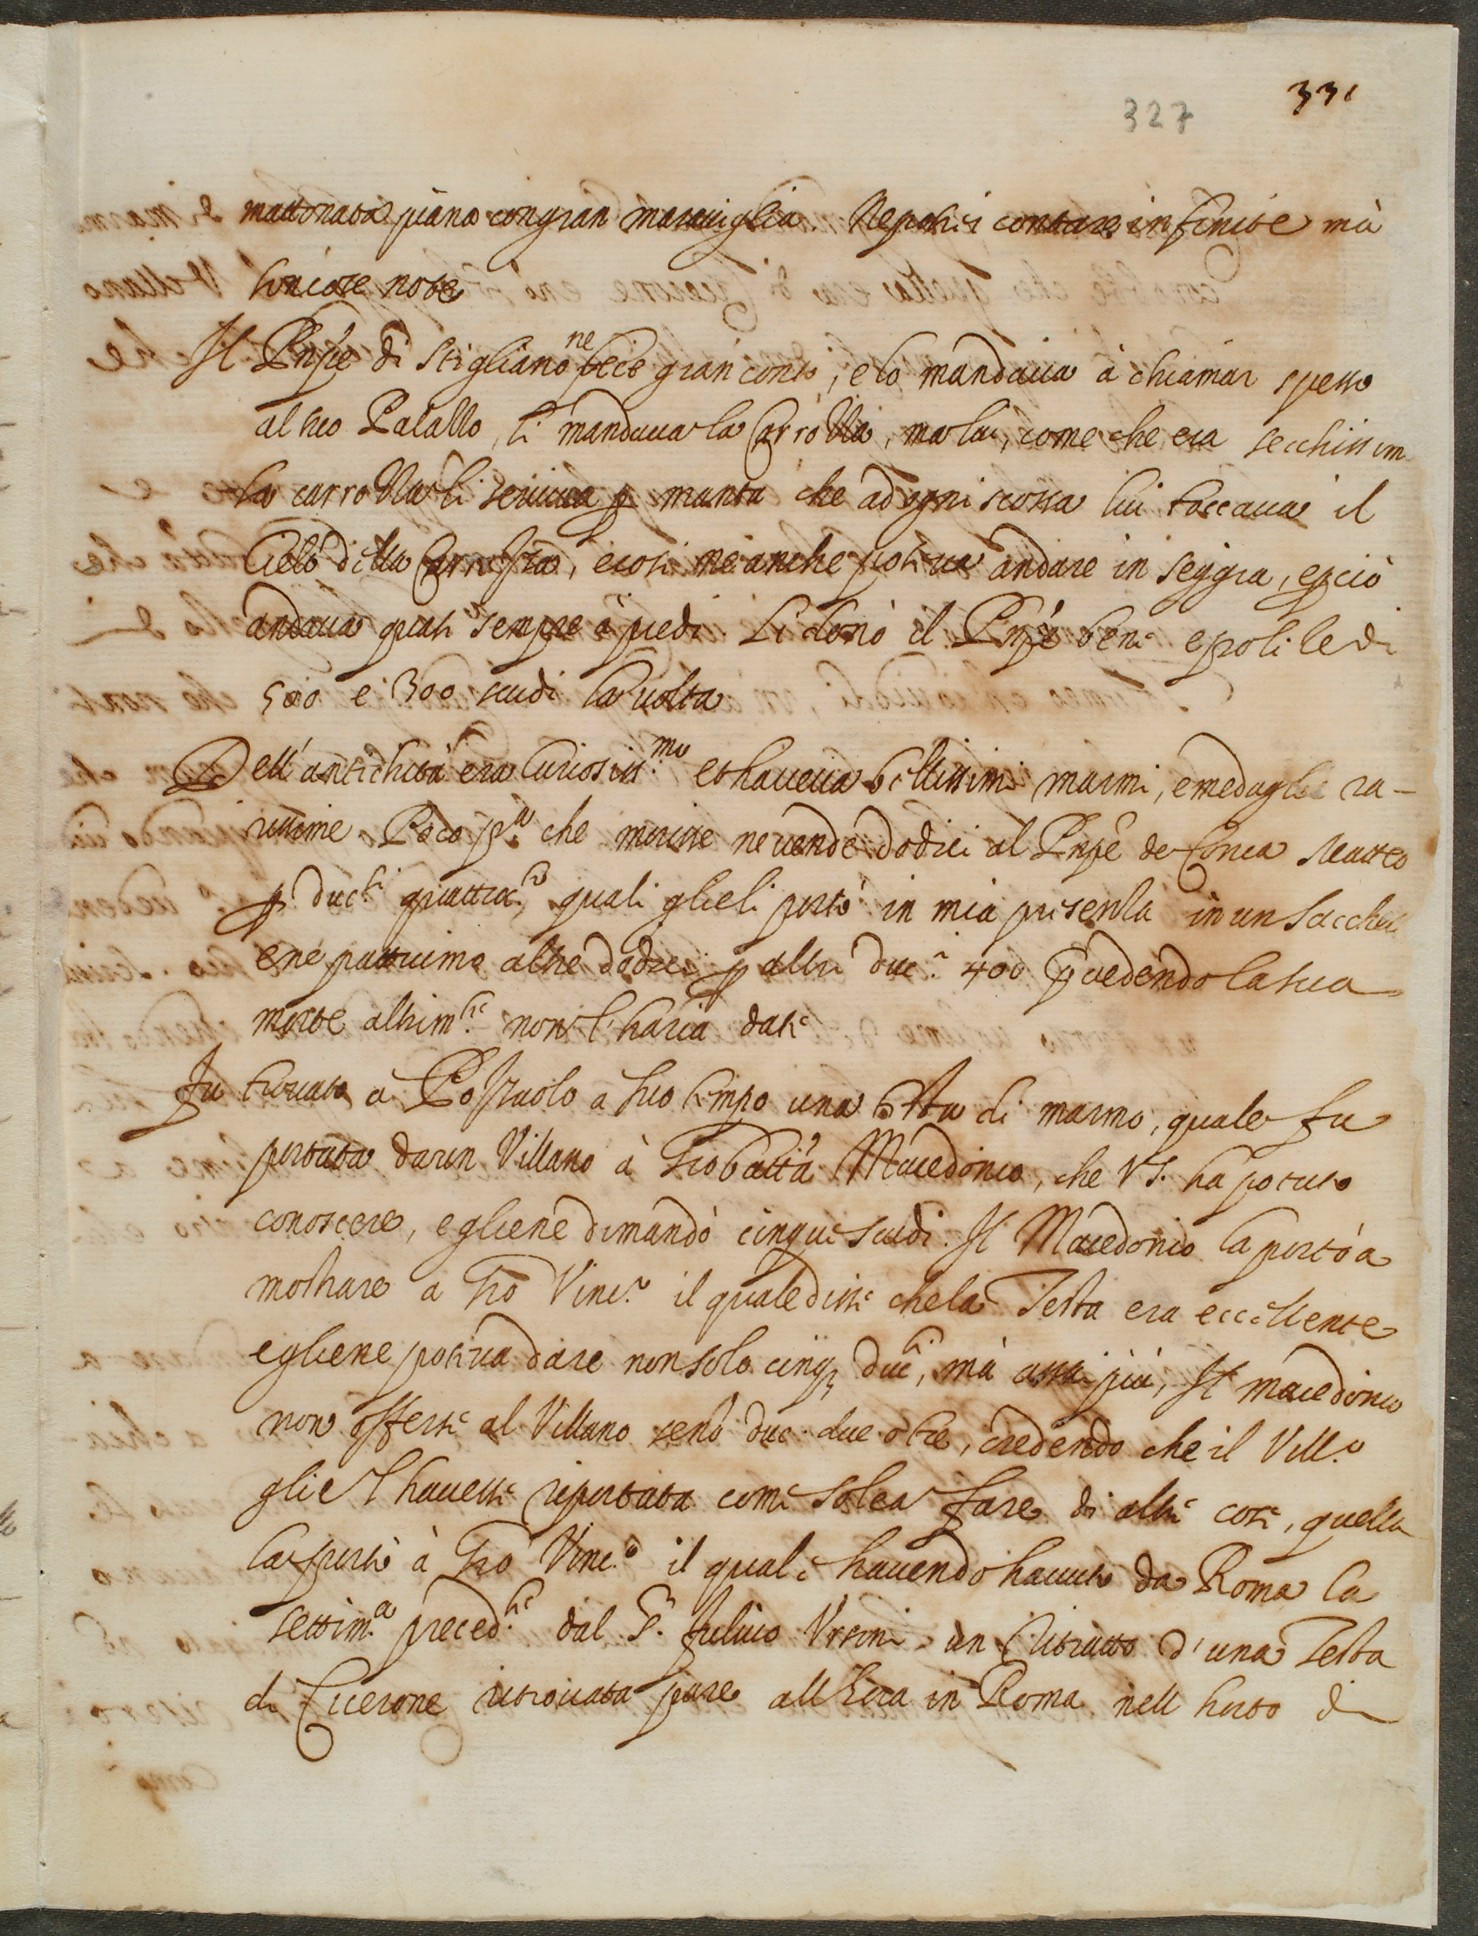 331
327
mattonata piana con gran maraviglia. Ne potrei contare infinite mà
son cose note
Il Pnpe di Stigliano ne fece gran conto, e lo mandava à chiamar spesso
al suo Palazzo, li mandava la Carrozza, ma lui, come che era secchissim
la carrozza li serviva p manta che ad ogni scossa lui toccava il
Cielo della Carrozza, e così ne anche poteva andare in seggia, e pciò
andava quasi sempre à piedi. Li donò il Pnpe bene e polile di
500 e 300 scudi la volta
Dell'antichità era Curiosiss.mo et haveva bellissimi marmi, e medaglie ra-
rissime Poco p.a che morisse ne vendè dodici al Pnpe de Conca Matteo
p duc.ti quattro.to, quali glieli portò in mia presenza in un sacchet
e ne pattuimo altre dodici p altri duc.i 400 prevedendo la sua
morte altrim.te non l'haria date
Fu trovata a Pozzuolo a suo tempo una testa di marmo, quale fu
portata da un Villano à Gio Batt.a Macedonio, che VS. ha potuto
conoscere, e gliene dimandò cinque scudi. Il Macedonio la portò a
mostrare a Gio Vinc.o il quale disse che la Testa era eccellente
e gliene poteva dare non solo cinq duc.i, mà assai più, Il Macedonio
non offerse al Villano senò duc. due ò tre, credendo che il Vill.o
gliel havesse riportata come solea fare di altre cose, quello
la portò à Gio Vinc.o il quale havendo havuto da Roma la
settim.a preced.te dal S.r Fulvio Ursini un Ritratto d'una Testa
di Cicerone ritrovata pure all hora in Roma nell horto di